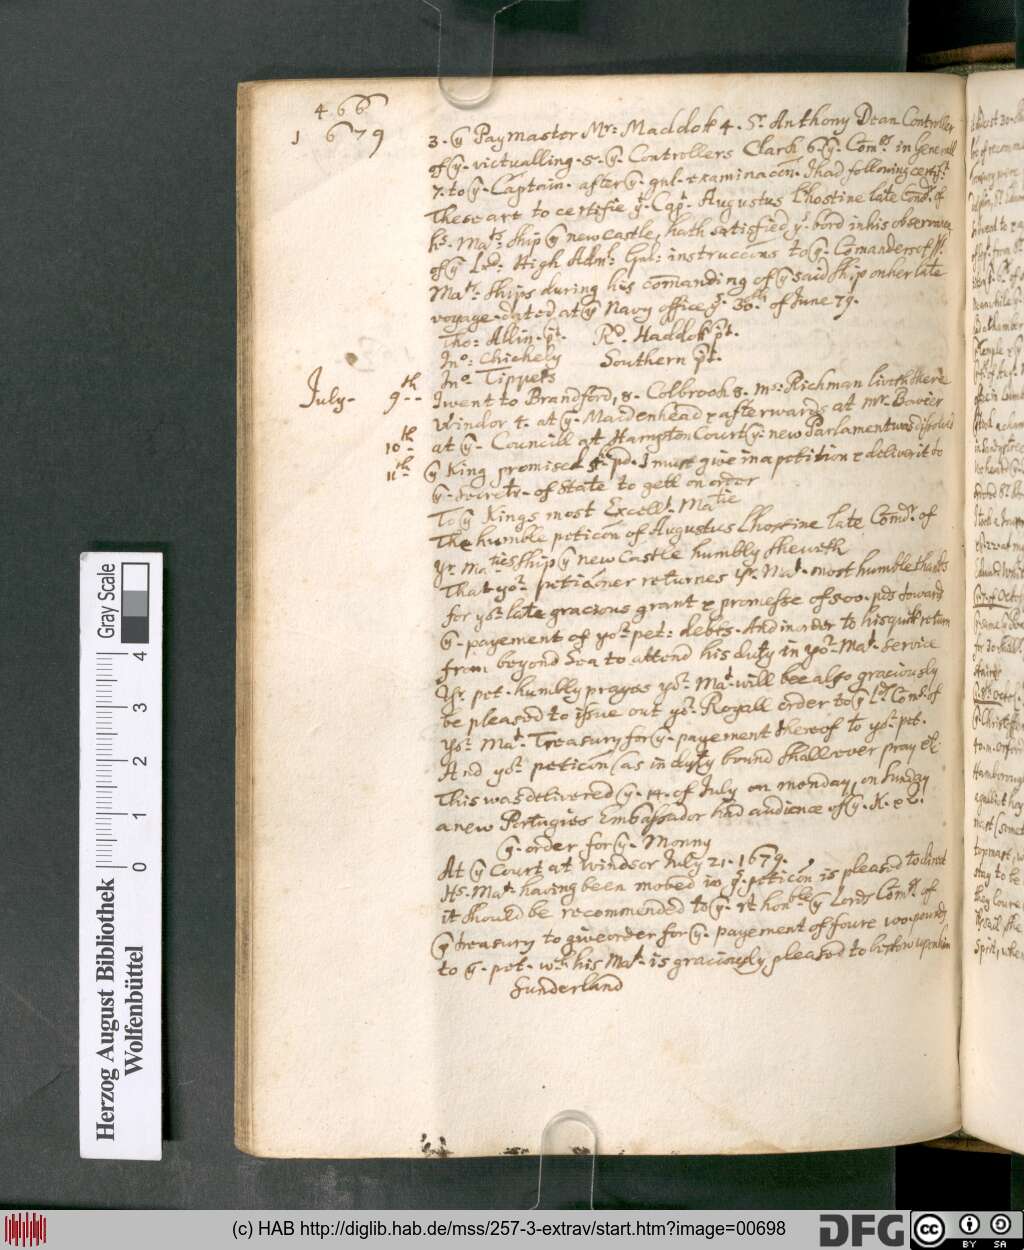 466
1679
3. ye Paymaster Mr: Maddok 4. Sr. Anthony Dean Controller
of ye. victualling. 5. ye. Controllers Clark 6. ye. Comrs. in Generall
7. to ye. Captain. after ye. gnl. examinacon. I had following certift
These are to certifie yt. Capt. Augustus Lhostine late Comdr. of
hs. Mats: ship ye newcastle, hath satisfied ys. bord in his observance
of ye Lrd: High Adm: Gnl: instruccons to ye. Comanders of
Mats. ships during his comanding of ye said ship on her late
voyage. dated at ye Navy office ye. 30th of June 79.
Tho: Allin. Rd. Haddok
Jno: Chichely Southern
Jno. Tippets
July- 9th-- I went to Brandford, 8. Colbrook 8. ms: Richman liveth there
Windor 4. at ye. Maidenhead & afterwards at mr. Bovier
10th- at ye. Councill at Hampton Court ye: new Parlament was disolved
11th- ye King promised pd. I must give in a petition & deliver it to
ye. Secretr. of State to gett on order
To ye Kings most Excellt. Matie
The humble peticon of Augustus Lhostine late Comdr. of
yr. Maties ship ye new Castle humbly sheweth
That yor. peticoner returnes yr. Mat. most humble thanks
for yor. late gracious grant & promesse of 500. pds toward
ye. payement of yor. pet: debts. And in order to his quik return
from beyond Sea to attend his duty in yor. Mat. service
Yr. pet. humbly prayes yor. Mat. will bee also graciously
be pleased to issue out yor. Royall order to ye Lds Coms. of
yor. Mat. Treasury for ye. payement thereof to yor. pet.
And yor. peticon (as in duty bound shall ever pray &c.
This was delivered ye. 14. of July on monday, on Sunday
a new Portugies Embassador had audience of ye. K. & Q.
ye. order for ye. Monny
At ye Court at Windsor July 21. 1679.
Hs. Mat. having been moved in ys. peticon is pleased to direct
it should be recommended to ye. rt honble ye Lords Comrs. of
ye treasury to give order for ye. payement of foure 100. pounds
to ye. pet. wch his Mat. is graciously pleased to bestow upon him
Sunderland
Herzog August Bibliothek
Wolfenbüttel
0 1 2 3 4
Gray Scale
(c) HAB http://diglib.hab.de/mss/257-3-extrav/start.htm?image=00698
DFG
cc BY SA